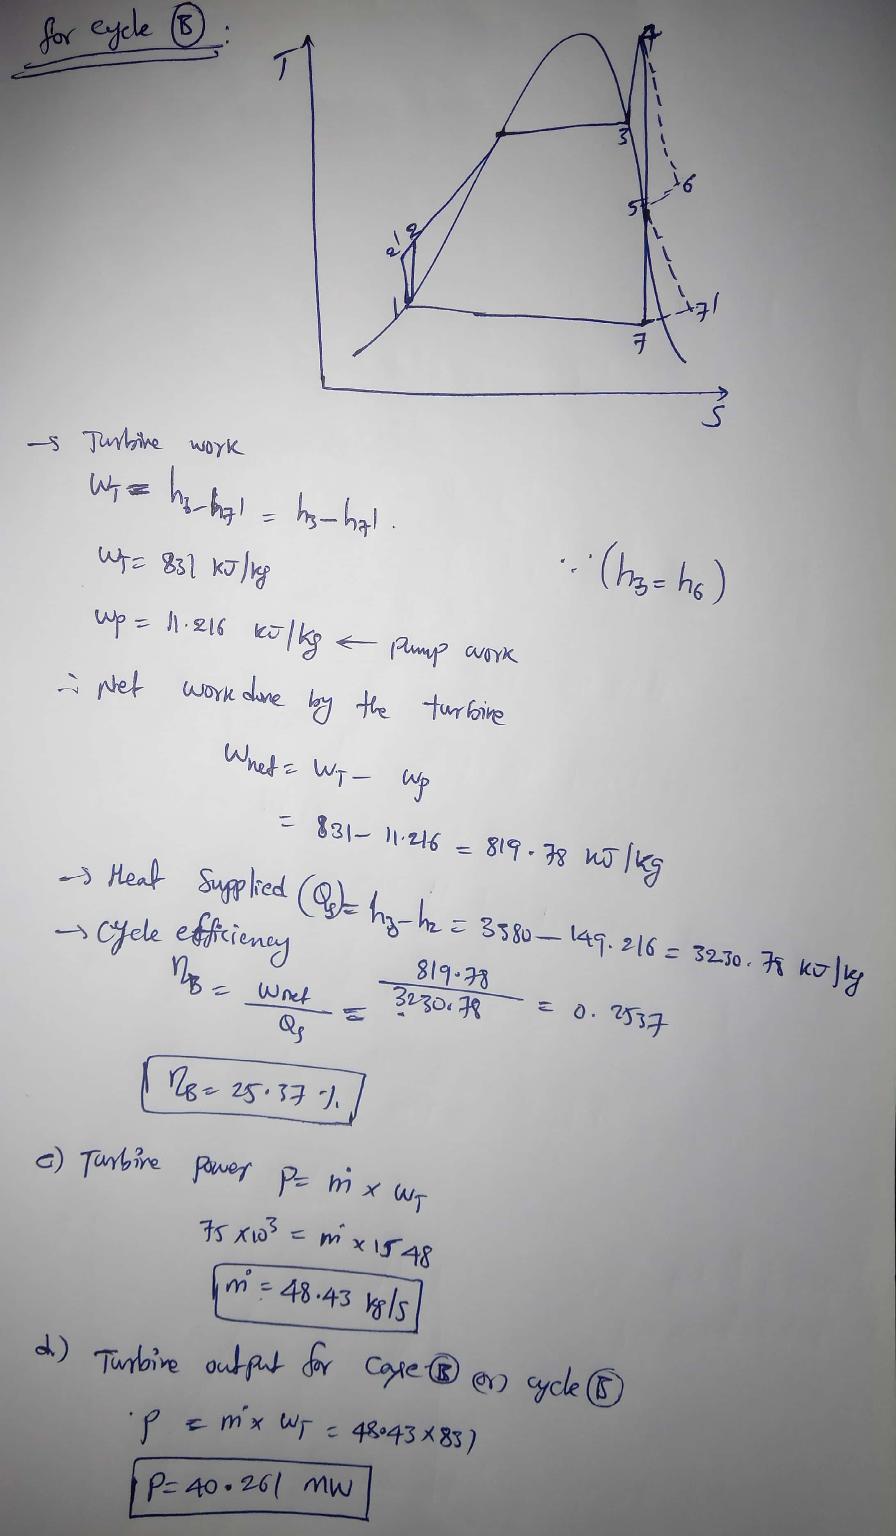 for cycle Ⓑ :
T
4
3
6
5
2' 2
1
7'
7
S
→ Turbine work
W_T = h_3 - h_7' = h_3 - h_7' .
∵ (h_3 = h_6)
W_T = 831 kJ/kg
wp = 11.216 kJ/kg ← pump work
∴ Net work done by the turbine
Wnet = W_T - wp
= 831 - 11.216 = 819.78 kJ/kg
→ Heat Supplied (Q_s) = h_3 - h_2 = 3380 - 149.216 = 3230.78 kJ/kg
→ Cycle efficiency
η_B = Wnet / Q_s = 819.78 / 3230.78 = 0.2537
η_B = 25.37 %
c) Turbine power P = ṁ x W_T
75 x 10^3 = ṁ x 1548
ṁ = 48.43 kg/s
d) Turbine output for case Ⓑ (or) cycle Ⓑ
P = ṁ x W_T = 48.43 x 831
P = 40.261 MW